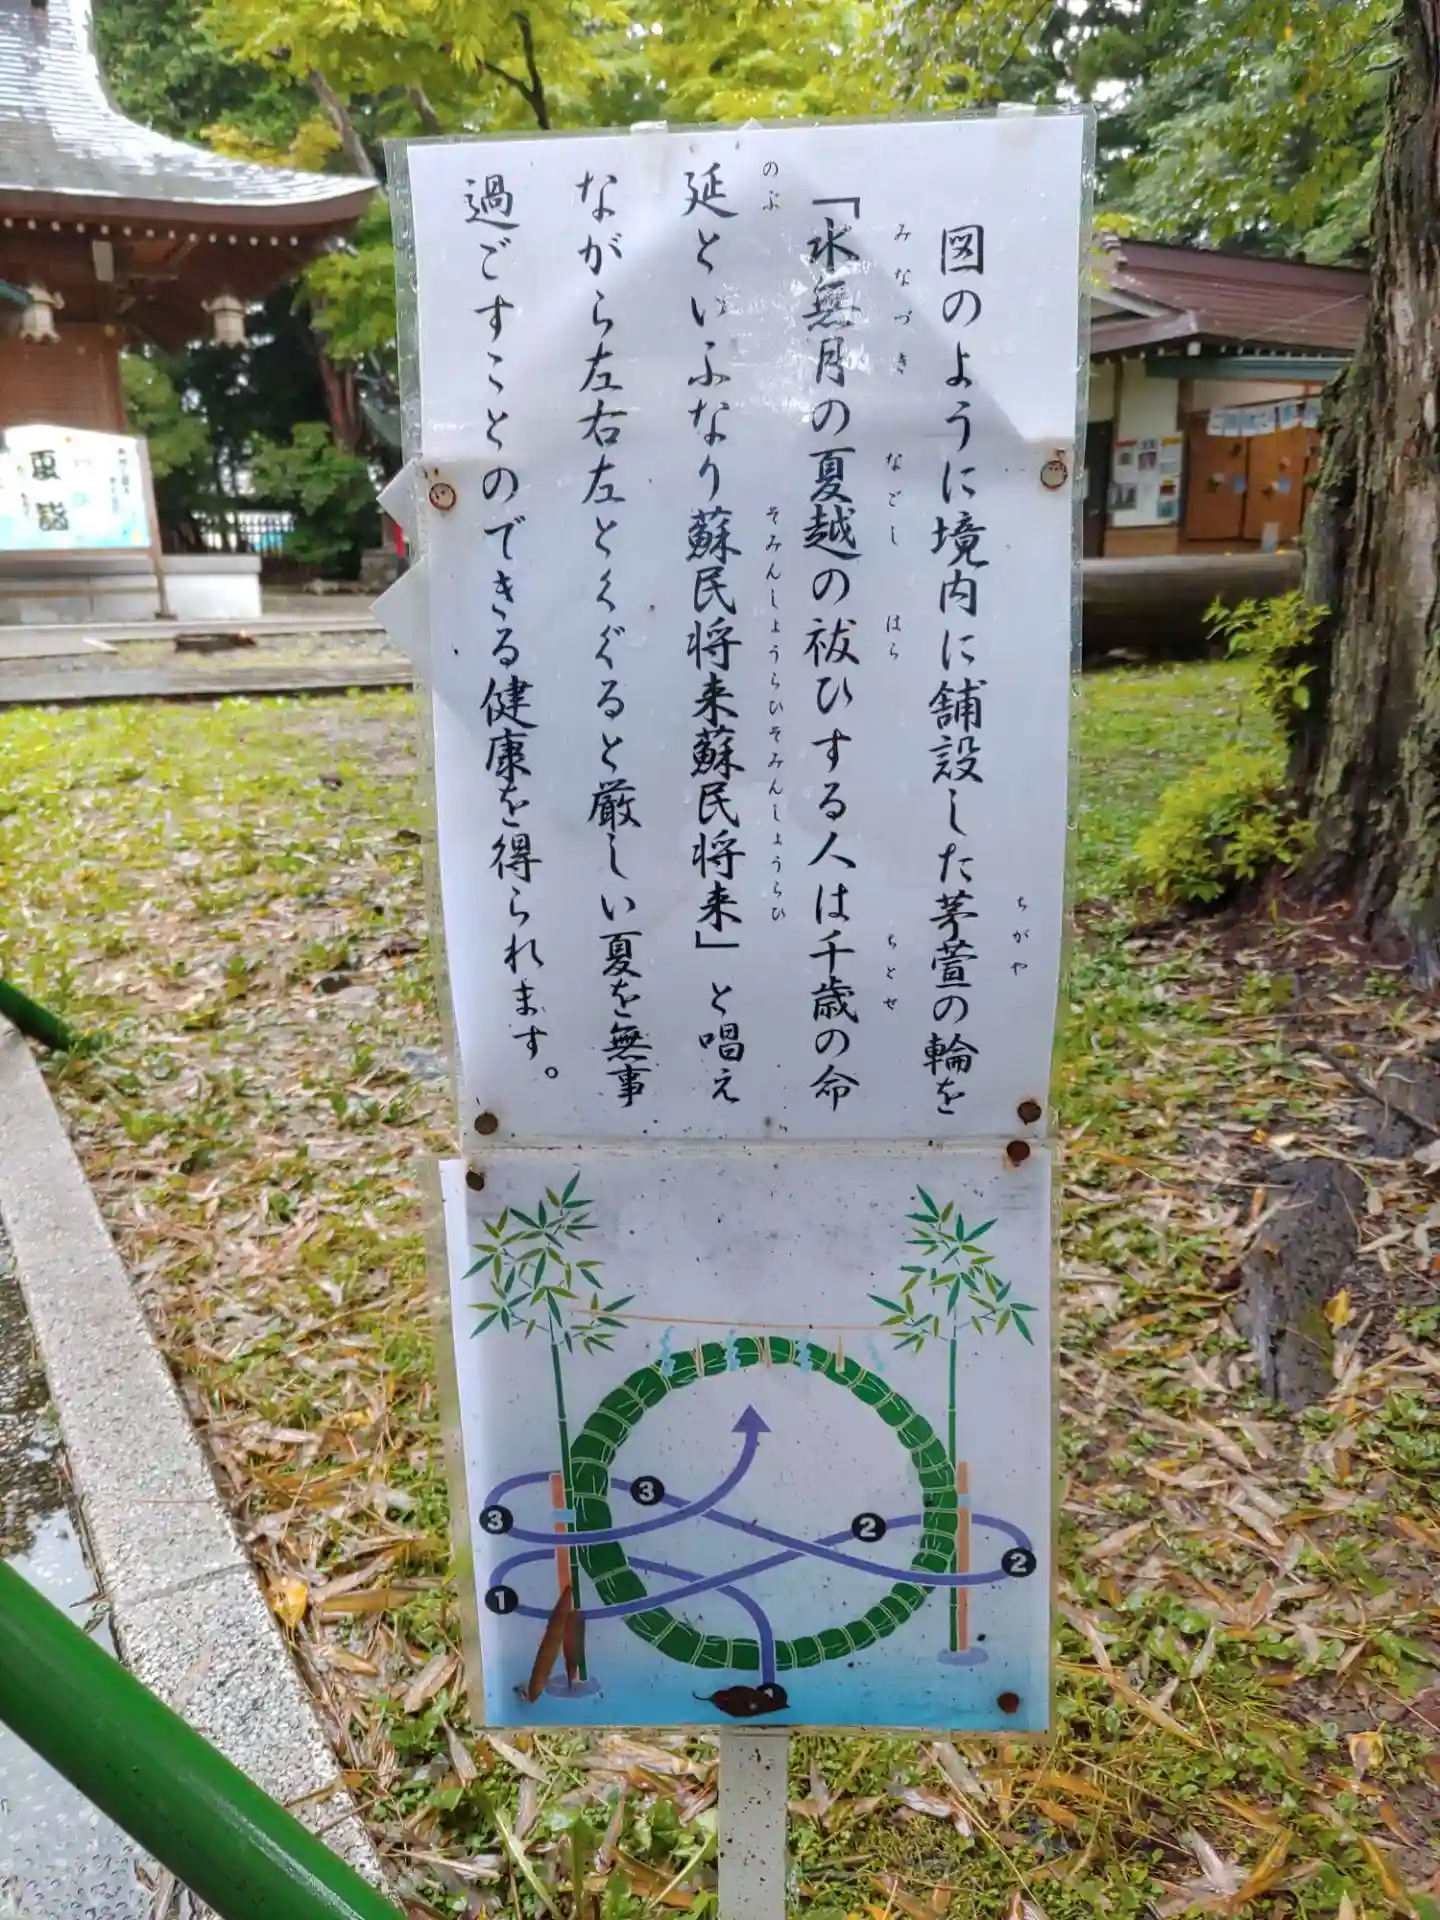 図のように境内に舗設した茅萱の輪を
ちがや
「水無月の夏越の祓ひする人は千歳の命
みなづき なごし はら ちとせ
延といふなり蘇民将来蘇民将来」と唱え
のぶ そみんしょうらひそみんしょうらひ
ながら左右左とくぐると厳しい夏を無事
過ごすことのできる健康を得られます。
3
3
2
2
1
1